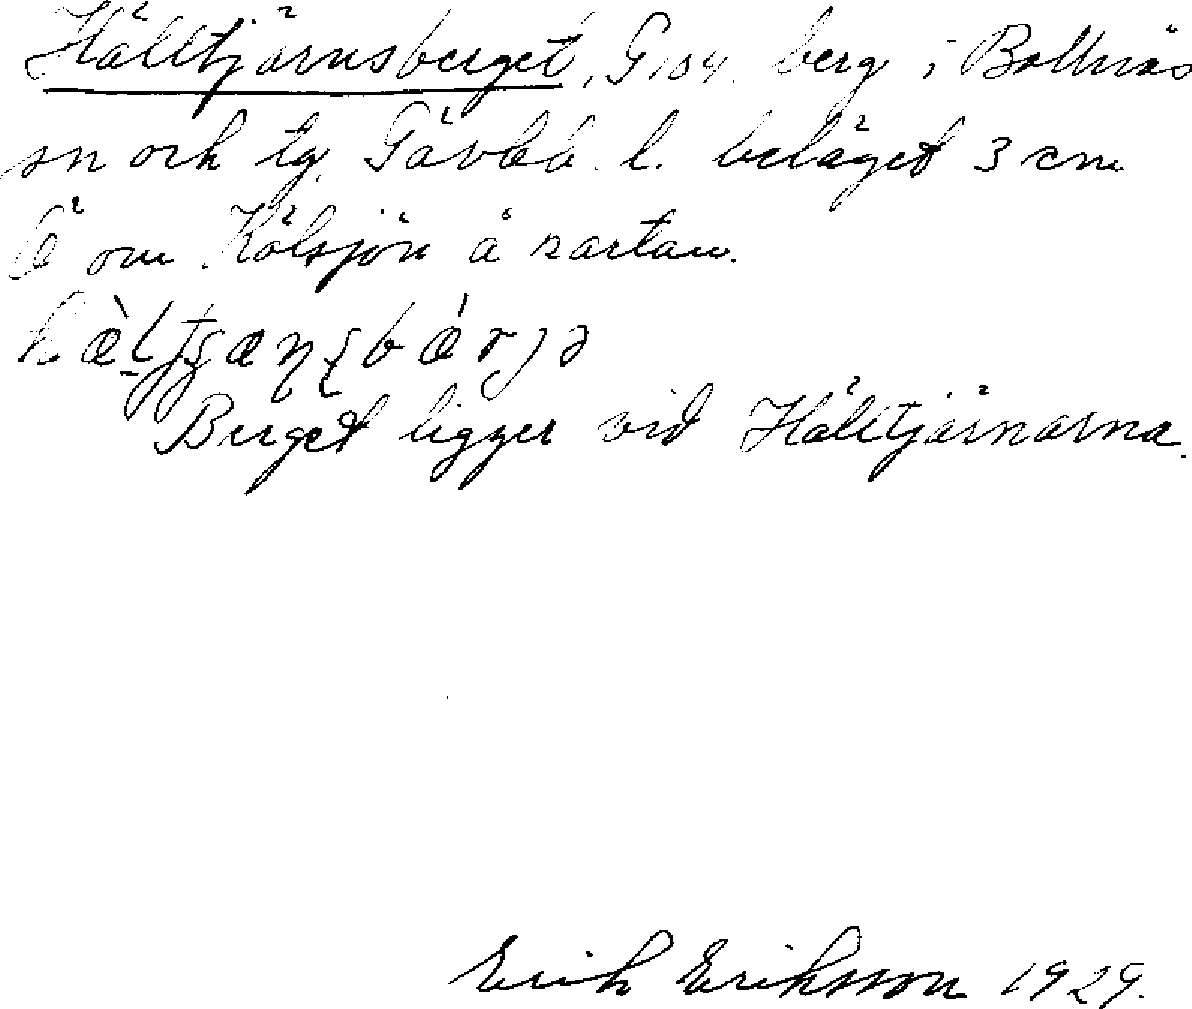 Hälltjärnsberget, G 104, berg i Bollnäs
sn och tg. Gävleb. l. beläget 3 cm
Ö om Kölsjön å kartan.
Berget ligger vid Hälltjärnarna.
Erik Eriksson 1929.